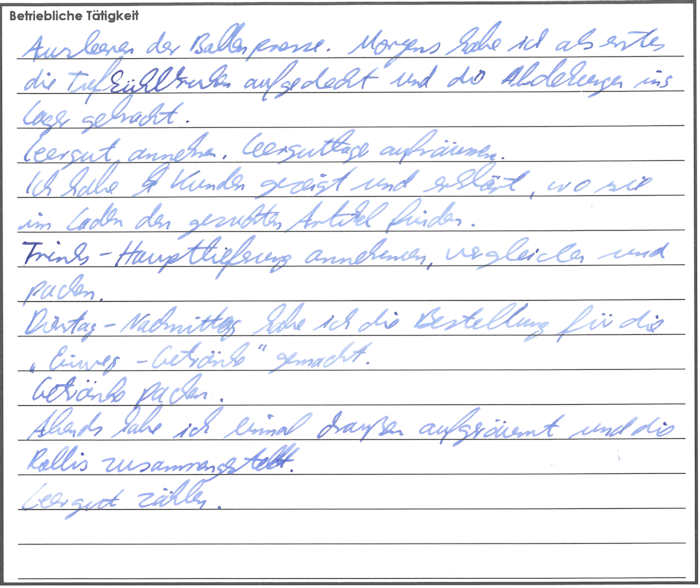 Betriebliche Tätigkeit
Ausleeren der Ballenpresse. Morgens habe ich als erstes
die Tiefkühltruhen aufgedeckt und die Abdeckungen ins
Lager gebracht.
Leergut annehmen. Leergutlage aufräumen.
Ich habe Kunden gezeigt und erklärt, wo sie
im Laden den gesuchten Artikel finden.
Trinks-Hauptlieferung annehmen, vergleichen und
packen.
Dienstag-Nachmittag habe ich die Bestellung für die
„Einweg-Getränke“ gemacht.
Getränke packen.
Abends habe ich einmal draußen aufgeräumt und die
Rollis zusammengestellt.
Leergut zählen.